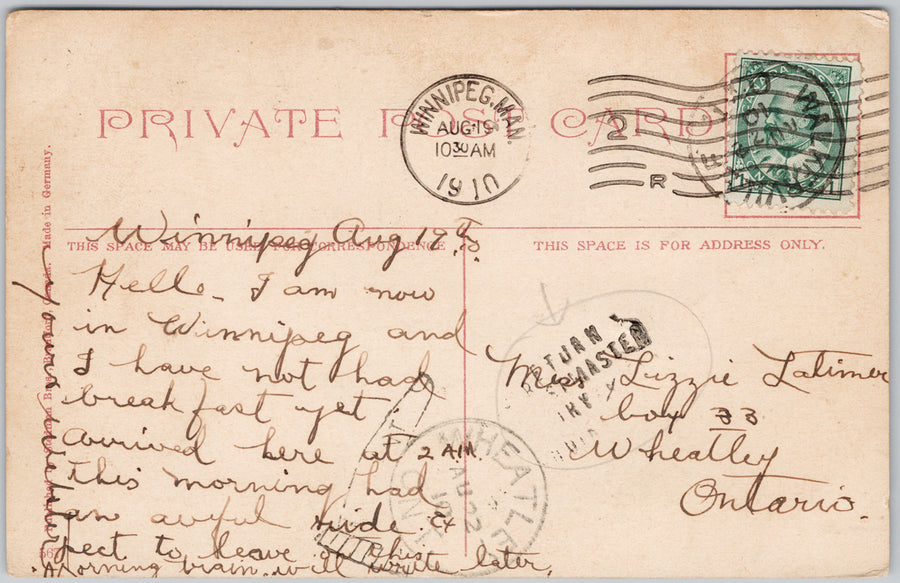 PRIVATE POST CARD
WINNIPEG, MAN.
AUG 19
10 30 AM
1910
2
R
WALKERVILLE
THIS SPACE MAY BE USED FOR CORRESPONDENCE
THIS SPACE IS FOR ADDRESS ONLY.
Made in Germany.
Winnipeg Aug 19th
Hello - I am now
in Winnipeg and
I have not had
breakfast yet.
arrived here at 2 AM.
this morning had
an awful ride Ex
pect to leave on this
morning train. will write later,
your
RETURN
TRY
Miss Lizzie Latimer
box 33
Wheatley
Ontario.
WHEATLEY
AU 22
ONT